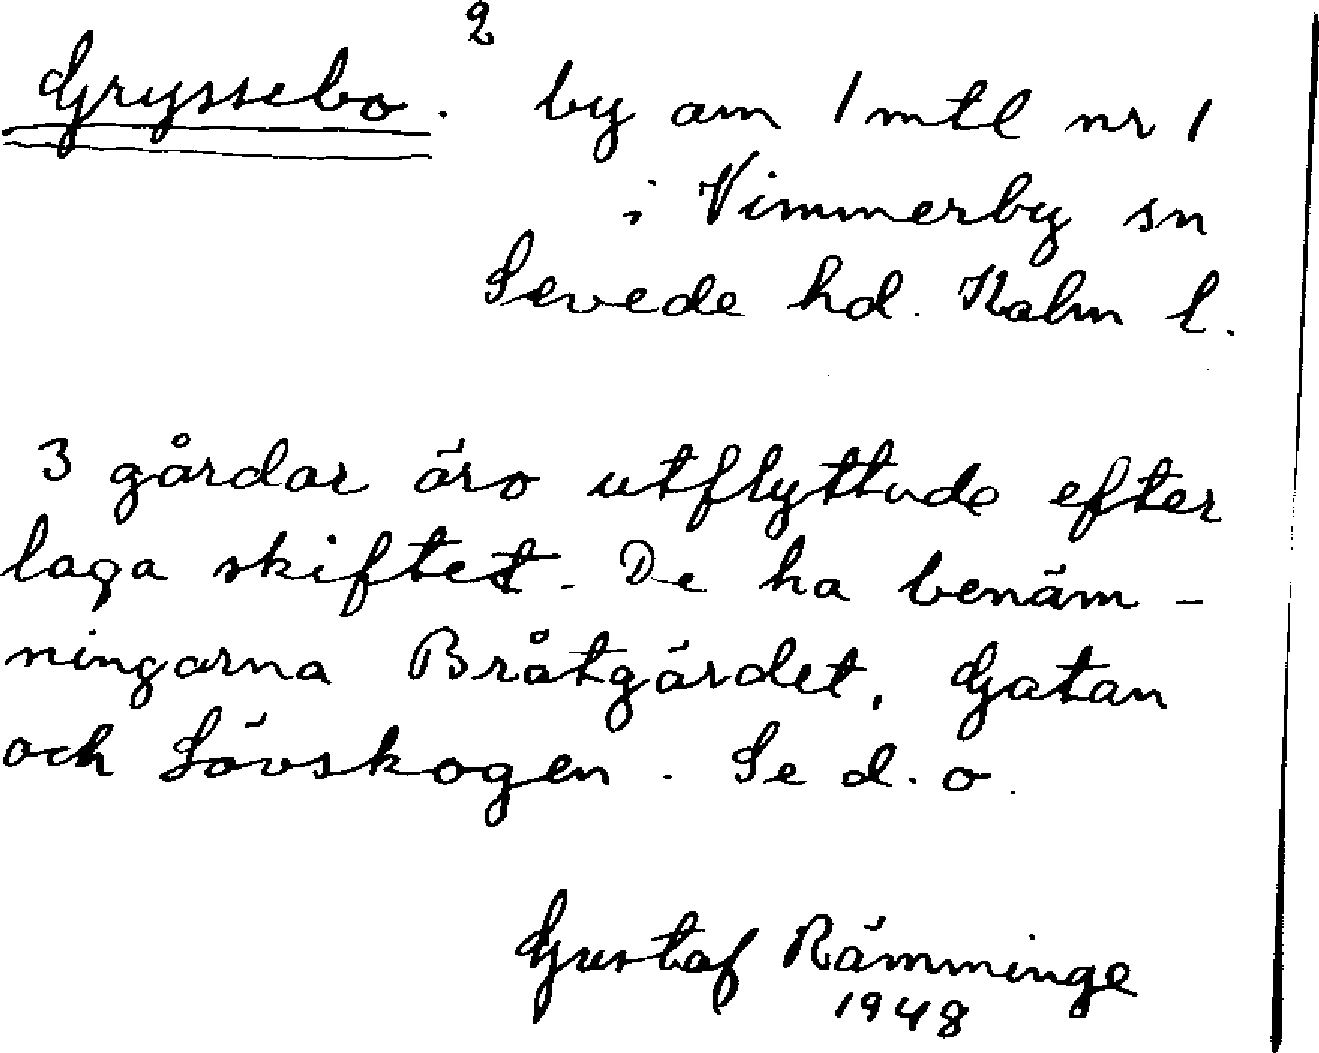 2
Gryssebo. by om 1 mtl nr 1
i Vimmerby sn
Sevede hd. Kalm l.
3 gårdar äro utflyttade efter
laga skiftet. De ha benäm-
ningarna Bråtgärdet, Gatan
och Lövskogen. Se d.o.
Gustaf Rämminge
1948